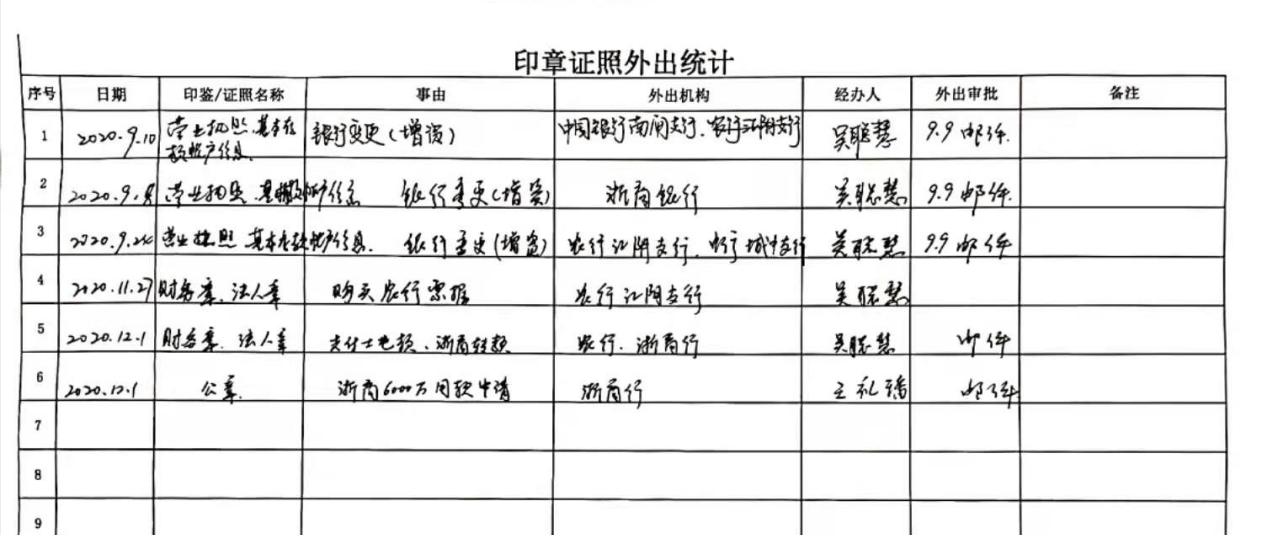 印章证照外出统计
序号 日期 印鉴/证照名称 事由 外出机构 经办人 外出审批 备注
1 2020.9.10 营业执照、基本存款账户信息 银行变更(增资) 中国银行南闸支行、农行江阴支行 吴聪慧 9.9邮件
2 2020.9. 营业执照、基本 账户信息 银行变更(增资) 浙商银行 吴聪慧 9.9邮件
3 2020.9.24 营业执照 基本存款账户信息 银行变更(增资) 农行江阴支行、 支行 吴聪慧 9.9邮件
4 2020.11.27 财务章、法人章 购买农行票据 农行江阴支行 吴聪慧
5 2020.12.1 财务章、法人章 支付土地款、浙商转款 农行、浙商行 吴聪慧 邮件
6 2020.12.1 公章 浙商6000万用款申请 浙商行 王礼 邮件
7
8
9